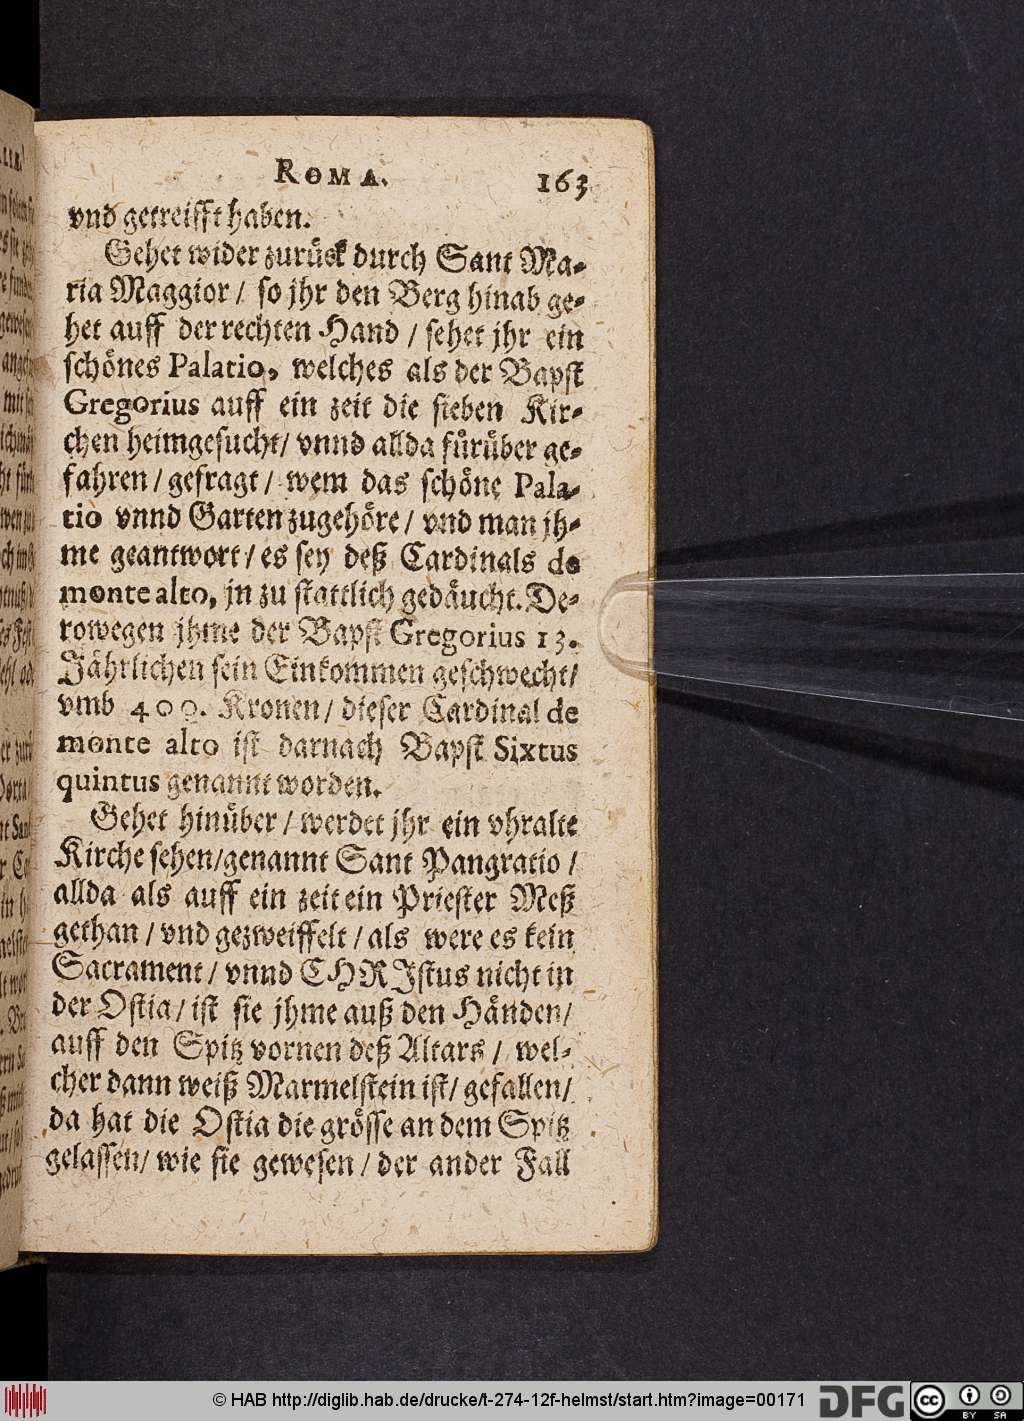 ROMA. 163
vnd getreifft haben.
Gehet wider zurück durch Sant Ma-
ria Maggior / so jhr den Berg hinab ge-
het auff der rechten Hand / sehet jhr ein
schönes Palatio, welches als der Bapst
Gregorius auff ein zeit die sieben Kir-
chen heimgesucht / vnnd allda fürüber ge-
fahren / gefragt / wem das schöne Pala-
tio vnnd Garten zugehöre / vnd man jh-
me geantwort / es sey deß Cardinals de
monte alto, jn zu stattlich gedäucht. De-
rowegen jhme der Bapst Gregorius 13.
Jährlichen sein Einkommen geschwecht /
vmb 400. Kronen / dieser Cardinal de
monte alto ist darnach Bapst Sixtus
quintus genannt worden.
Gehet hinüber / werdet jhr ein vhralte
Kirche sehen / genannt Sant Pangratio /
allda als auff ein zeit ein Priester Meß
gethan / vnd gezweiffelt / als were es kein
Sacrament / vnnd CHRJstus nicht in
der Ostia / ist sie jhme auß den Händen /
auff den Spitz vornen deß Altars / wel-
cher dann weiß Marmelstein ist / gefallen /
da hat die Ostia die grösse an dem Spitz
gelassen / wie sie gewesen / der ander Fall
© HAB http://diglib.hab.de/drucke/t-274-12f-helmst/start.htm?image=00171 DFG cc BY SA